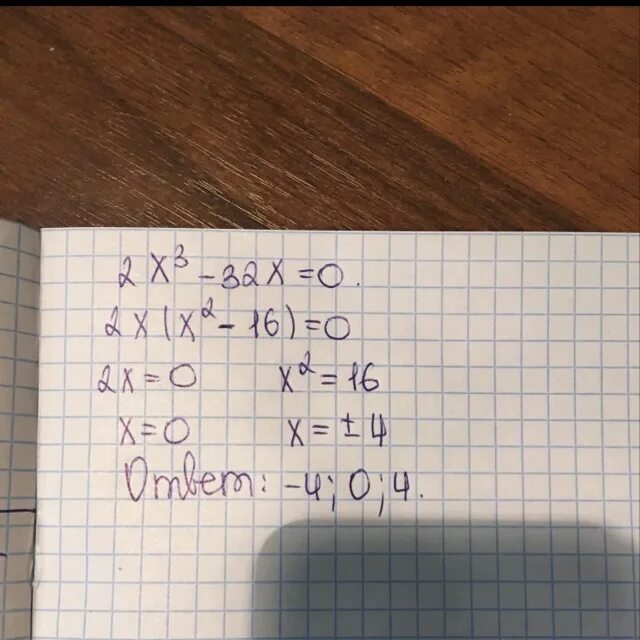 2x³ - 32x = 0.
2x(x² - 16) = 0
2x = 0 x² = 16
x = 0 x = ± 4
Ответ: -4; 0; 4.